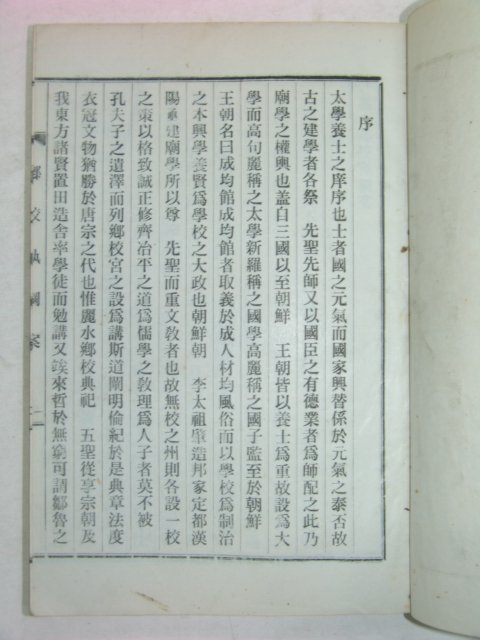 序
太學養士之庠序也士者國之元氣而國家興替係於元氣之泰否故
古之建學者各祭　先聖先師又以國臣之有德業者爲師配之此乃
廟學之權輿也盖自三國以至朝鮮　王朝皆以養士爲重故設爲大
學而高句麗稱之太學新羅稱之國學高麗稱之國子監至於朝鮮
王朝名曰成均館成均館者取義於成人材均風俗而以學校爲制治
之本興學養賢爲學校之大政也朝鮮朝　李太祖肇造邦家定都漢
陽重建廟學所以尊　先聖而重文敎者也故無校之州則各設一校
之策以格致誠正修齊治平之道爲儒學之敦理爲人子者莫不被
孔夫子之遺澤而列鄉校宮之設爲講斯道闡明倫紀於是典章法度
衣冠文物猶勝於唐宗之代也惟麗水鄉校典祀　五聖從享宗朝及
我東方諸賢置田造舍率學徒而勉講又竢來哲於無窮可謂鄒魯之
鄉校
案